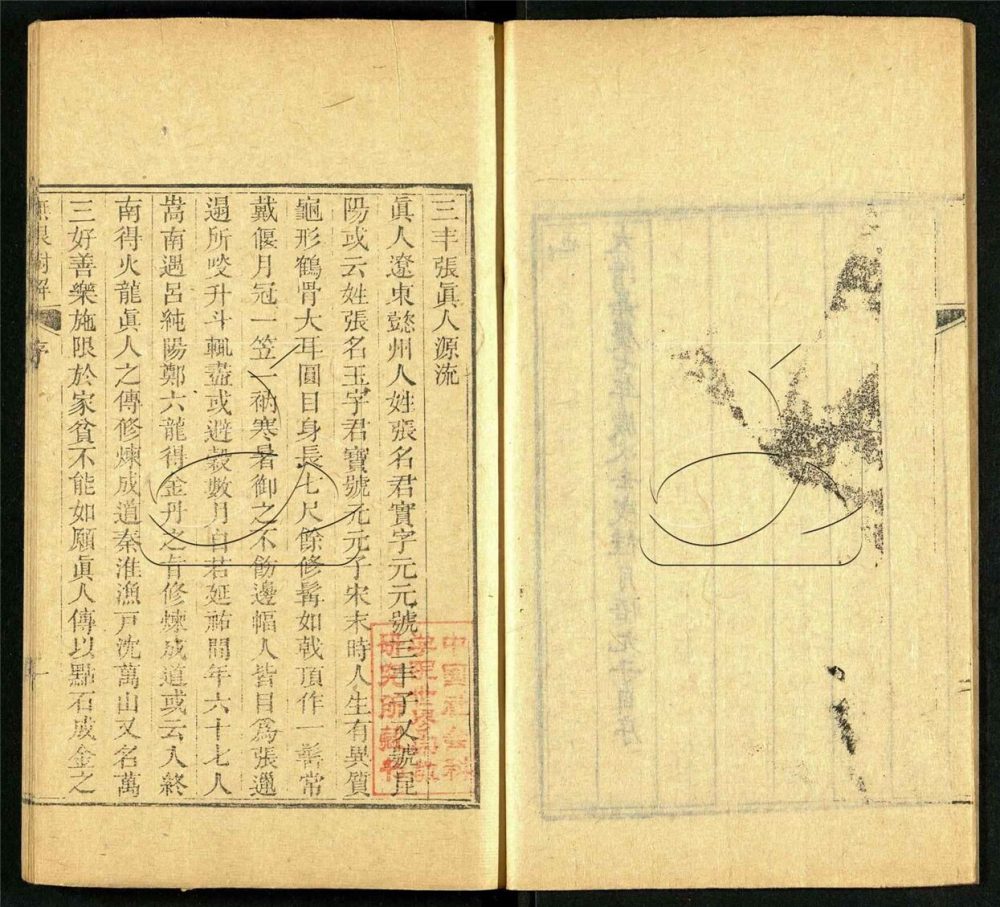 三丰張眞人源流
眞人遼東懿州人姓張名君實字元元號三丰子又號昆
陽或云姓張名玉字君寶號元元子宋末時人生有異質
龜形鶴骨大耳圓目身長七尺餘修髯如戟頂作一髻常
戴偃月冠一笠一衲寒暑御之不飾邊幅人皆目爲張邋
遢所啖升斗輒盡或避穀數月自若延祐間年六十七入
嵩南遇呂純陽鄭六龍得金丹之旨修煉成道或云入終
南得火龍眞人之傳修煉成道秦淮漁戶沈萬山又名萬
三好善樂施限於家貧不能如願眞人傳以點石成金之
無根樹解
序
一
中國社會科
學院世界宗教
研究所藏書